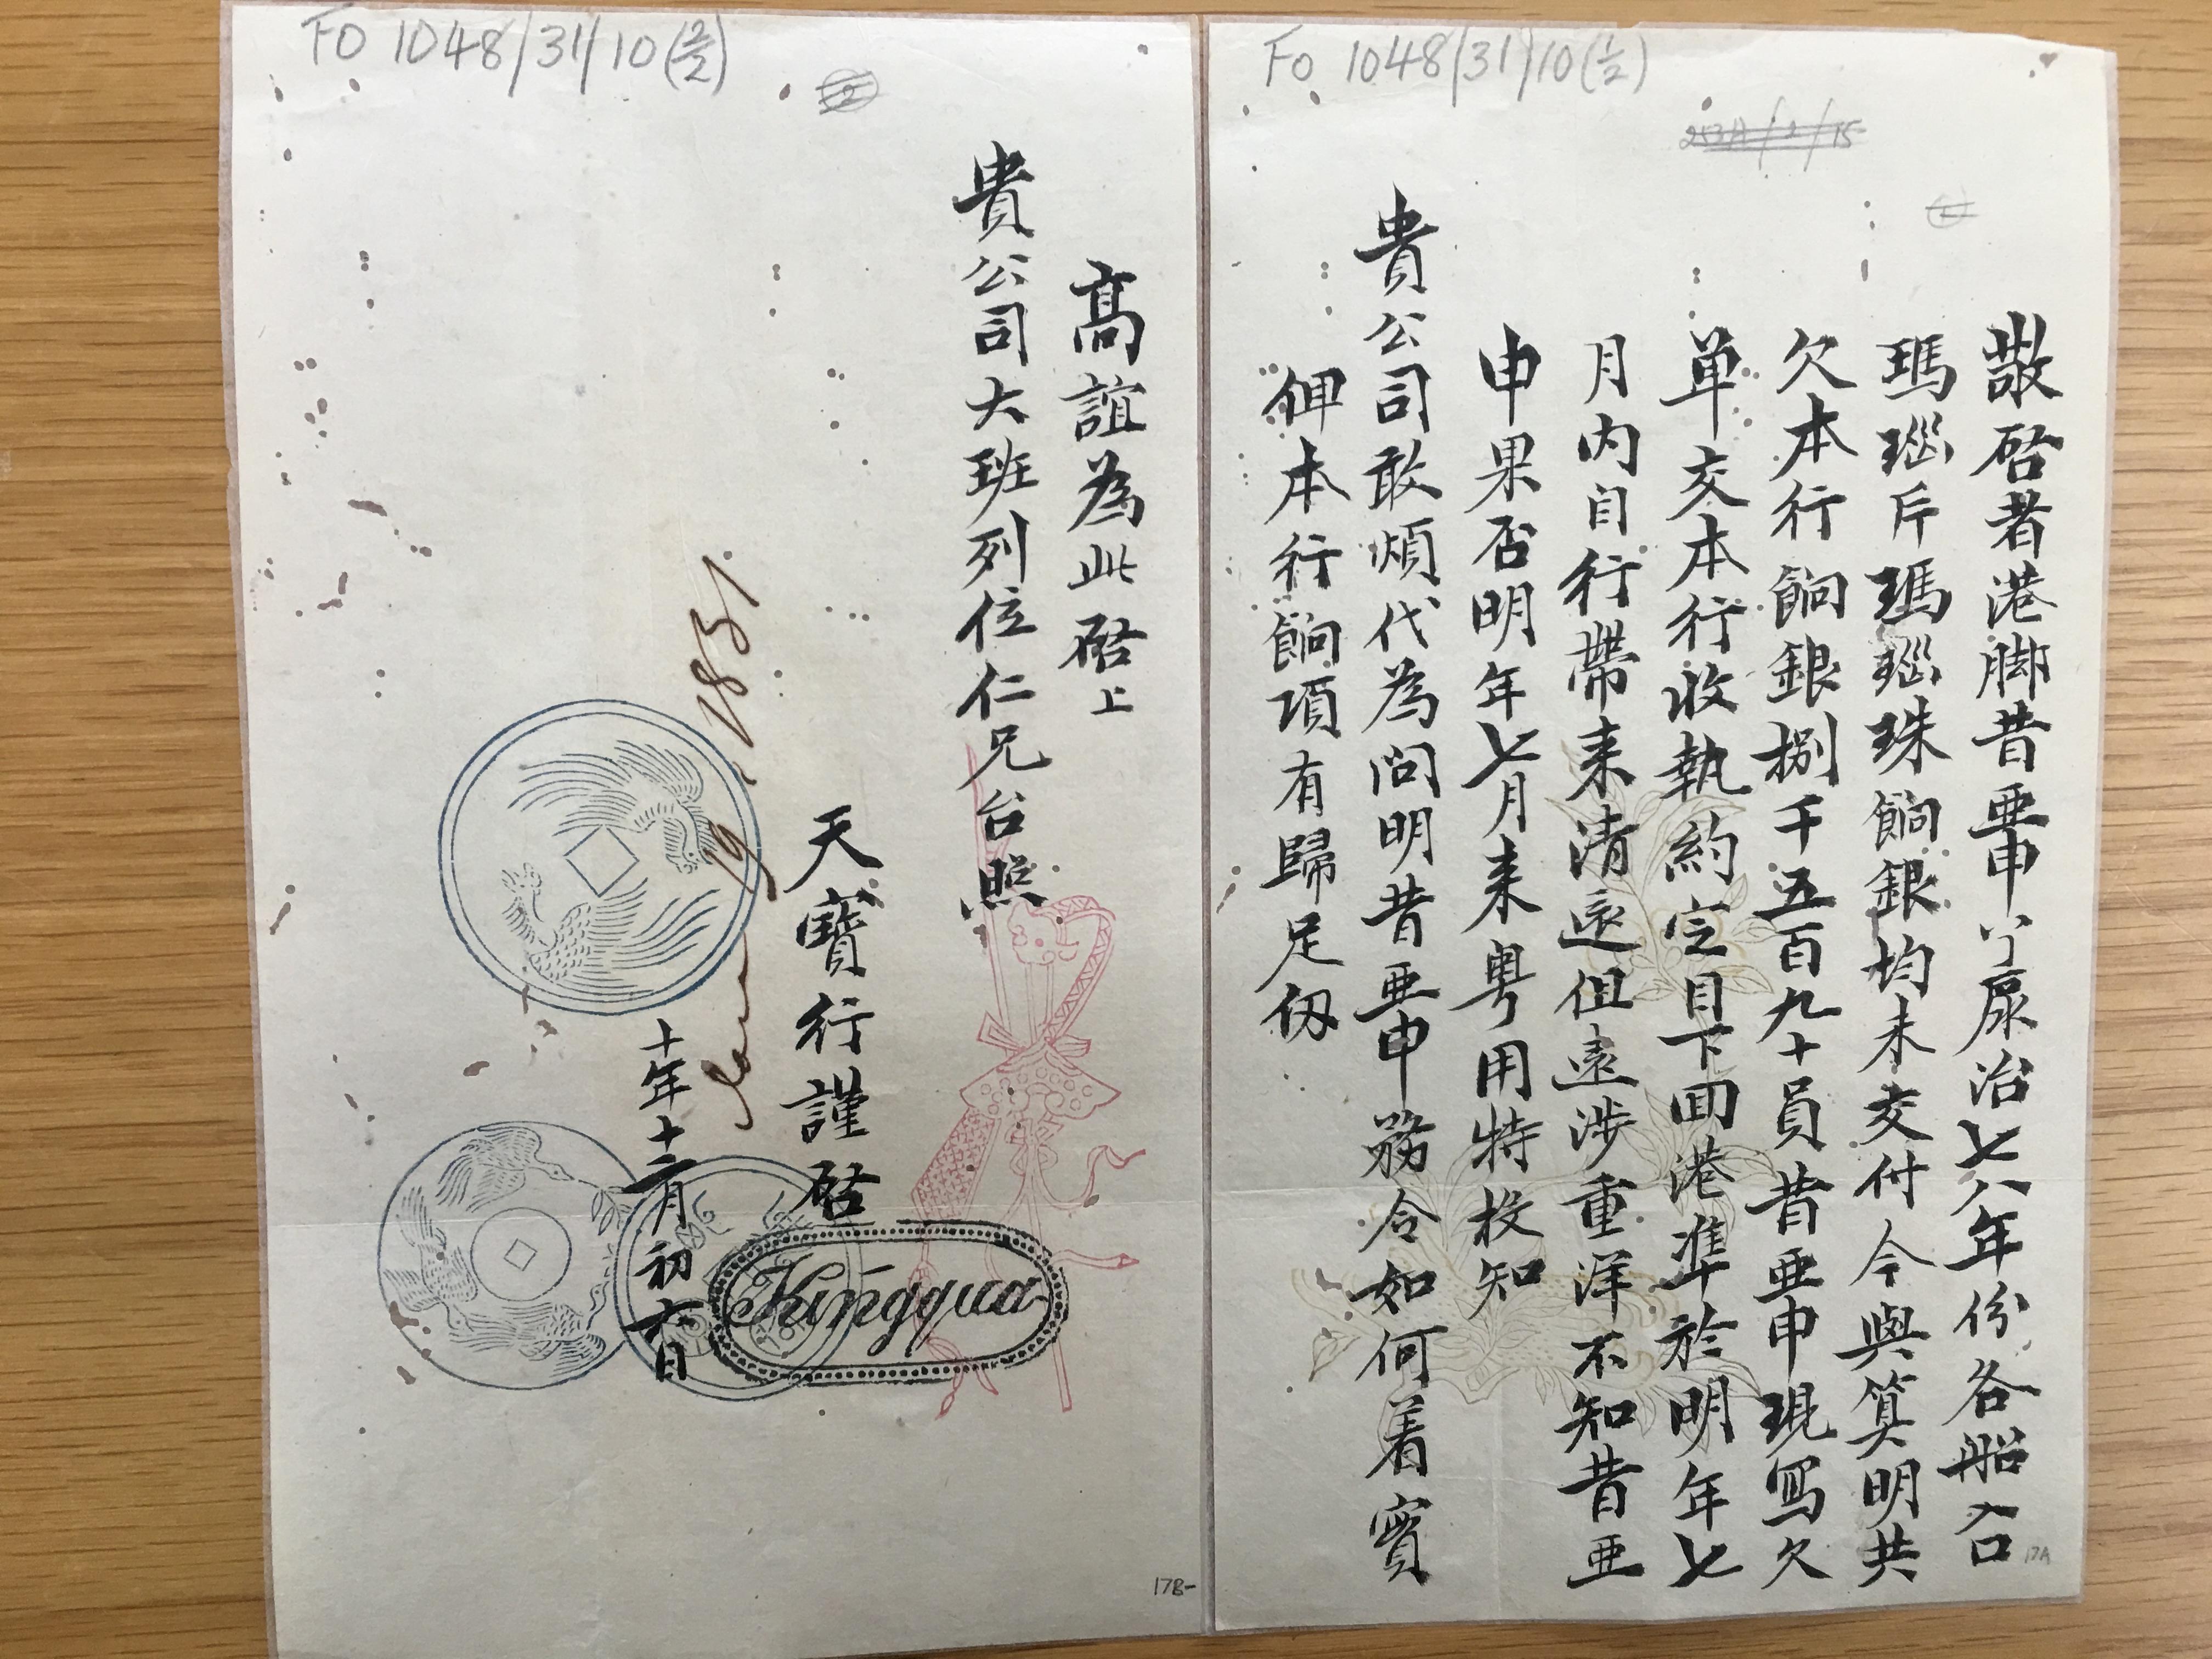 FO 1048/31/10(1/2)
253A/2/15
敬啓者港脚昔亞申吖㕃治七八年份各船入口
瑪瑙斤瑪瑙珠餉銀均未交付今與算明共
欠本行餉銀捌千五百九十員昔亞申現寫欠
单交本行收執約定目下回港準於明年七
月內自行帶来清還但遠涉重洋不知昔亞
申果否明年七月来粤用特投知
貴公司敢煩代為问明昔亞申務令如何着實
俾本行餉項有歸足仭
17A
FO 1048/31/10(2/2)
高誼為此啓上
貴公司大班列位仁兄台照
天寶行謹啓
Kingqua
1831
十年十二月初六日
17B